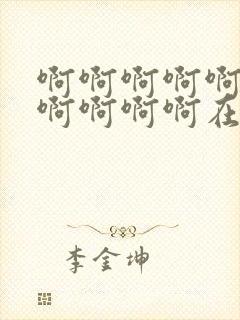 啊啊啊啊啊
啊啊啊啊在
李金坤